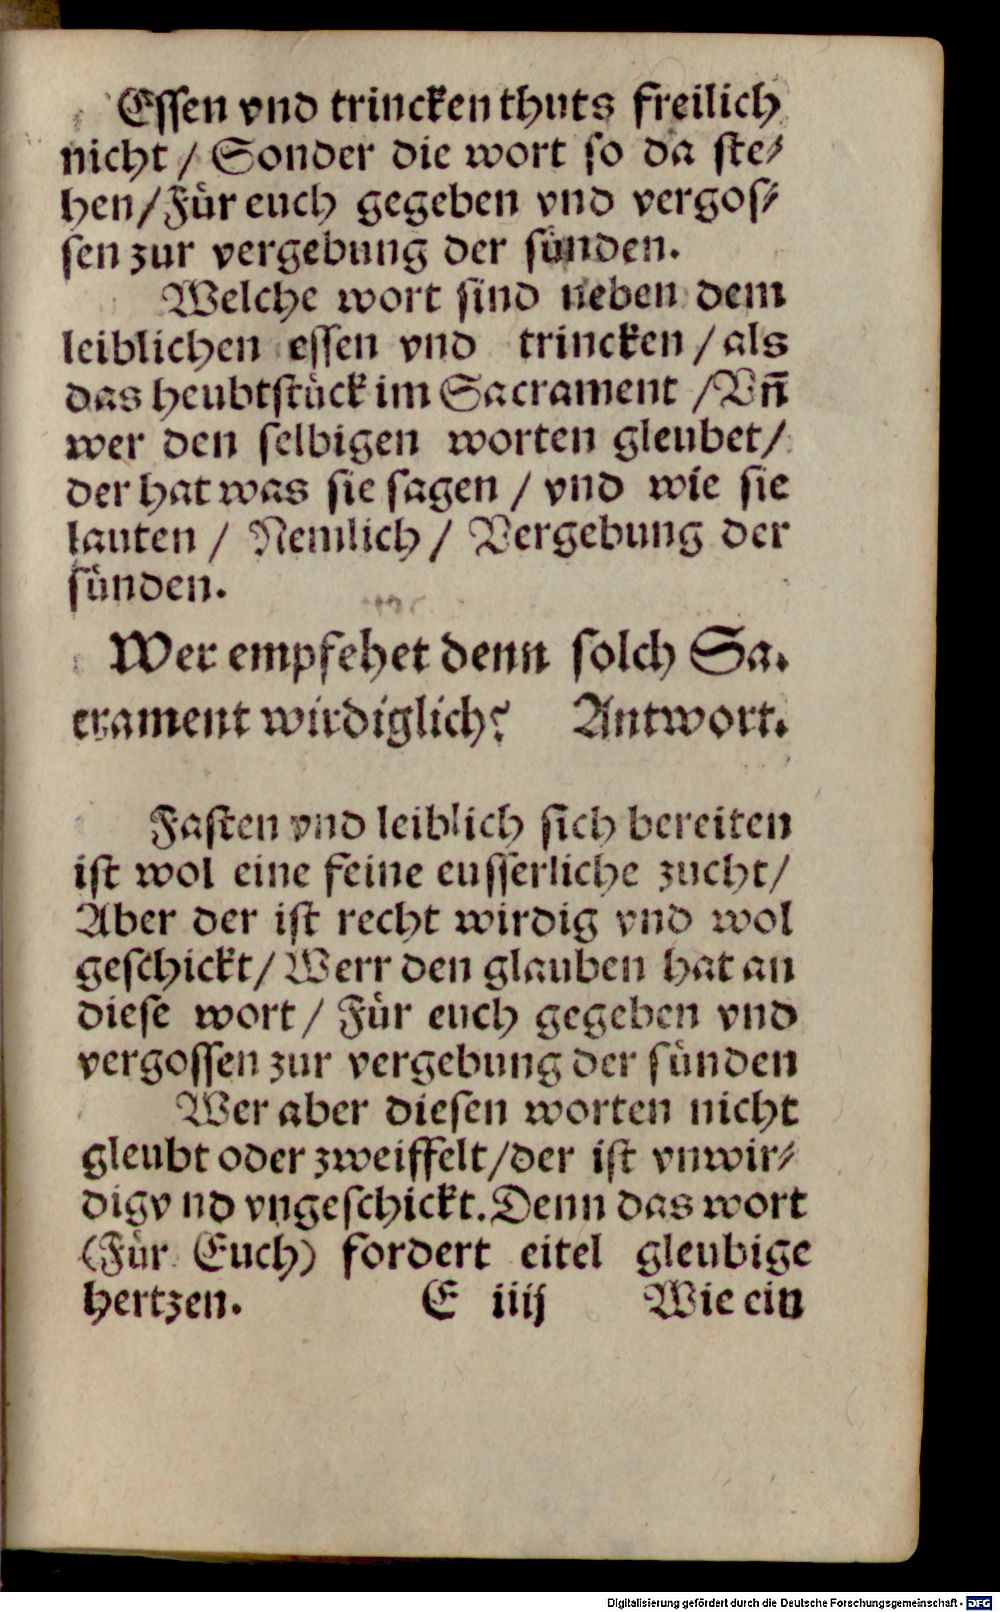 Essen vnd trincken thuts freilich
nicht / Sonder die wort so da ste⸗
hen/Für euch gegeben vnd vergos⸗
sen zur vergebung der sünden.
Welche wort sind neben dem
leiblichen essen vnd trincken / als
das heubtstück im Sacrament /Vñ
wer den selbigen worten gleubet/
der hat was sie sagen / vnd wie sie
lauten / Nemlich / Vergebung der
sünden.
Wer empfehet denn solch Sa.
crament wirdiglich? Antwort.
Fasten vnd leiblich sich bereiten
ist wol eine feine eusserliche zucht/
Aber der ist recht wirdig vnd wol
geschickt/ Werr den glauben hat an
diese wort / Für euch gegeben vnd
vergossen zur vergebung der sünden
Wer aber diesen worten nicht
gleubt oder zweiffelt/der ist vnwir⸗
digv nd vngeschickt. Denn das wort
(Für Euch) fordert eitel gleubige
hertzen. E iiij Wie ein
Digitalisierung gefördert durch die Deutsche Forschungsgemeinschaft - DFG